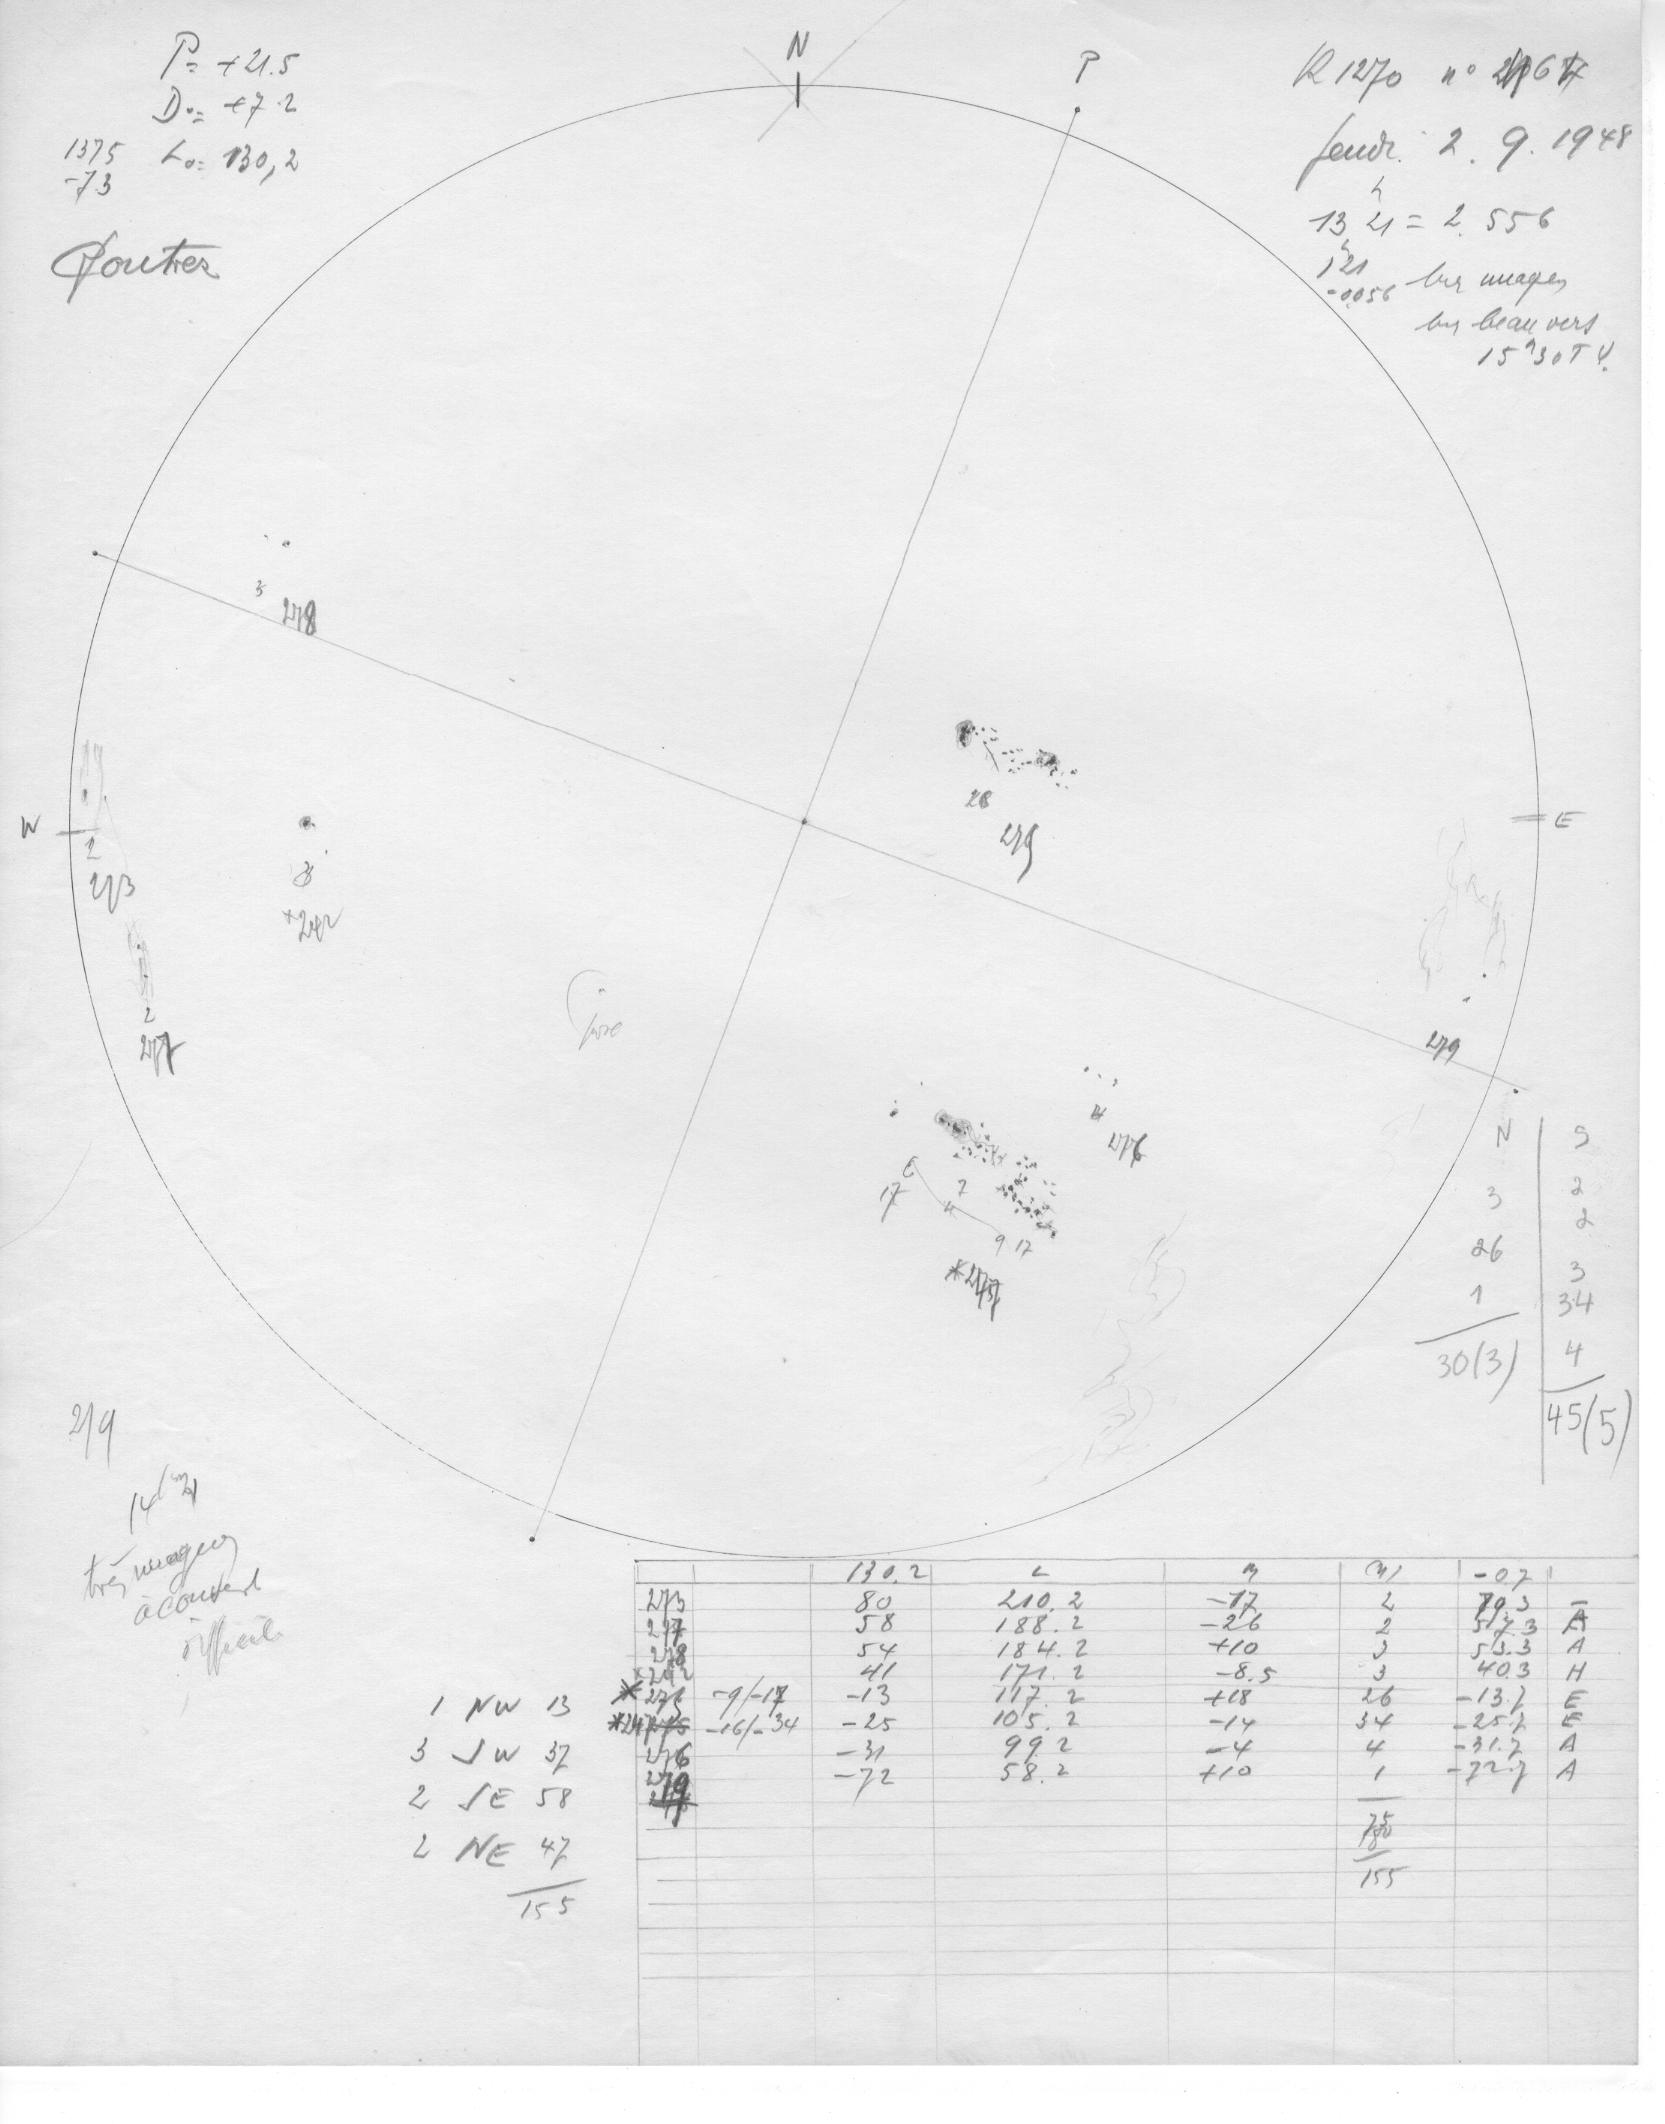 P= +21.5
Do= +7.2
1375
-73
Lo= 130,2
N
P
R 1270 n°
Jeudi 2. 9. 1948
13h 21 = 2.556
1h21
-0.056
nuages
beau vers
15h30 T U.
3
278
W
2
273
3
2
277
26
E
279
276
6
17
7
4
9 17
N
S
3
2
2
26
3
1
34
4
30(3)
45(5)
2/9
14h
très nuageux
difficile
130.2 L -0.7
273 80 210.2 -17 2 79.3 -
277 58 188.2 -26 2 57.3 A
278 54 184.2 +10 3 53.3 A
41 171.2 -8.5 3 40.3 H
-9/-17 -13 117.2 +18 26 -13.7 E
-16/-34 -25 105.2 -14 34 -25.7 E
276 -31 99.2 -4 4 -31.7 A
279 -72 58.2 +10 1 -72.7 A
75
80
155
1 NW 13
3 SW 37
2 SE 58
2 NE 47
155